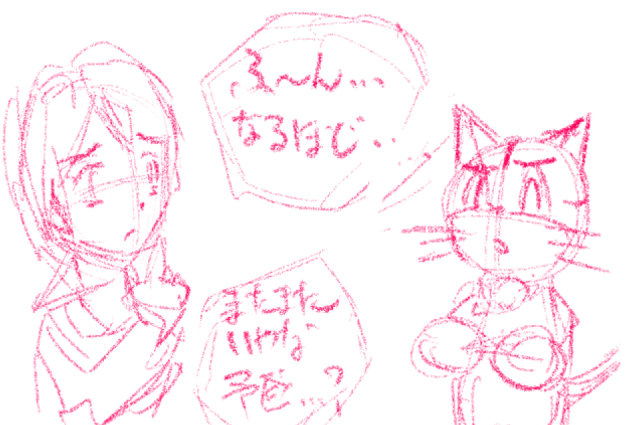 ふ〜ん…
なるほど…
またまた
いやな
予色…?